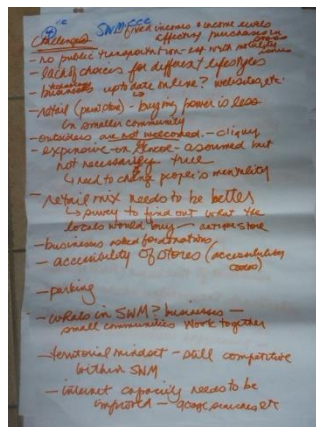 SWM:
Challenges fixed incomes + income levels
effecting purchases in
- no public transportation - esp. with mobility issues
- lack of choices for different lifestyles
- businesses up to date online? websites, etc.
- retail - buying power is less
in smaller community
- outsiders are not welcomed - cliquey
- expensive - assumed but
not necessarily true
↳ need to change people's mentality
- retail mix needs to be better
↳ survey to find out what the
locals would buy - store
- businesses asked for donations
- accessibility of stores (accessibility
codes)
- parking
- whats in SWM? businesses -
small communities work together
- territorial mindset - still competitive
within SWM
- internet capacity needs to be
improved - google searches etc